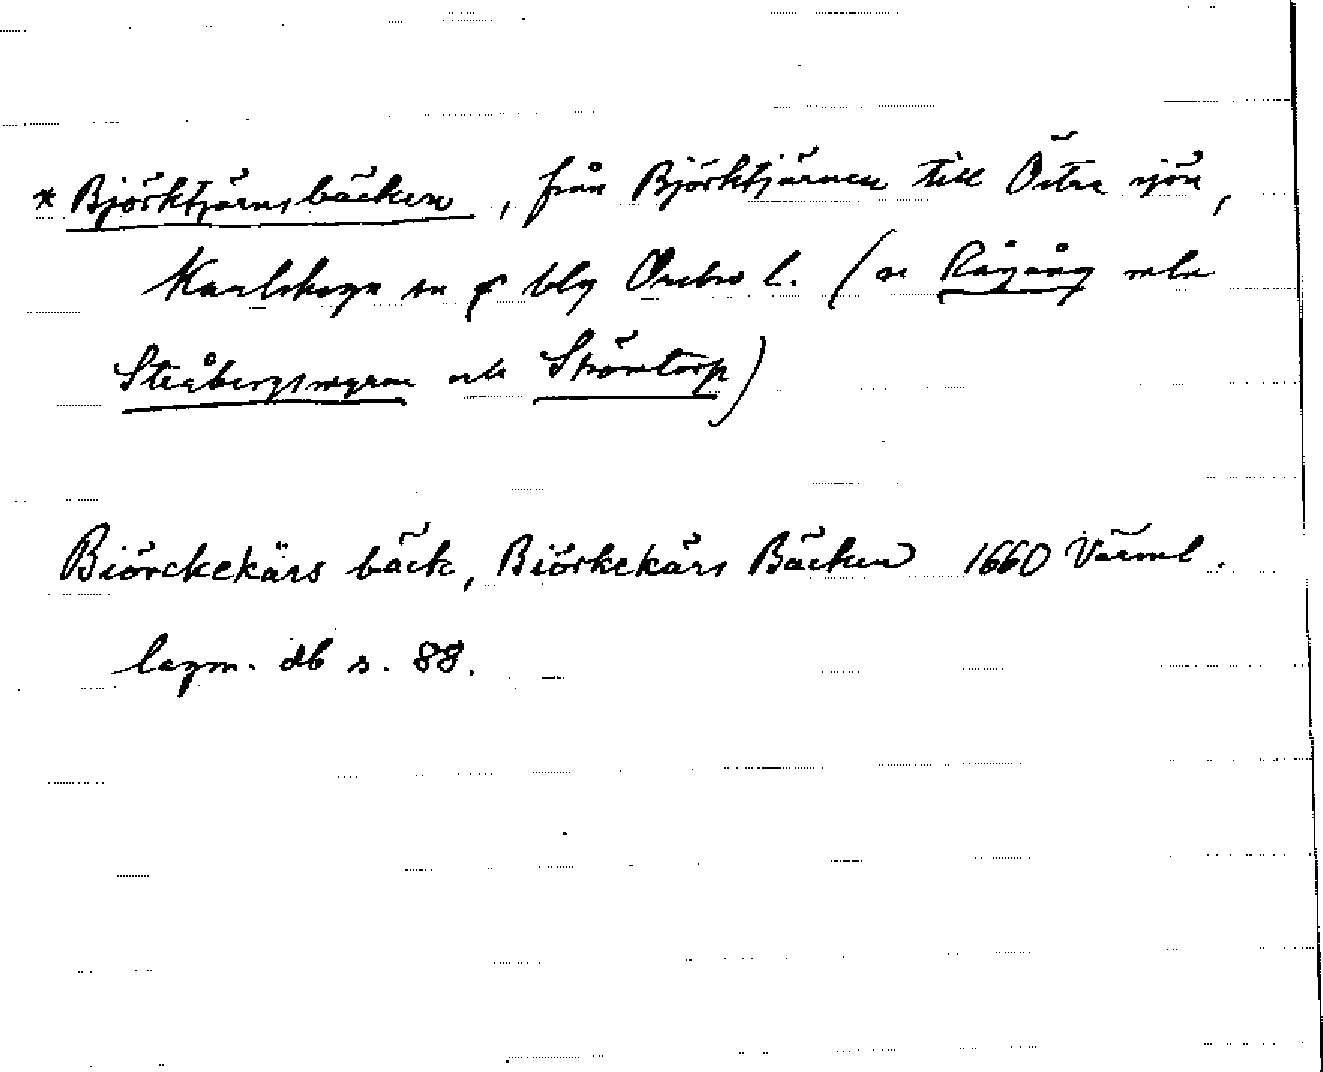 * Björktjärnsbäcken, från Björktjärnen till Östra sjön,
Karlskoga sn o blg Örebro l. ( Rågång mln
Stråbergsmyren och Strömtorp)
Biörckekärs bäck, Biörkekärs Bäcken 1660 Värml.
lagm. db s. 88.